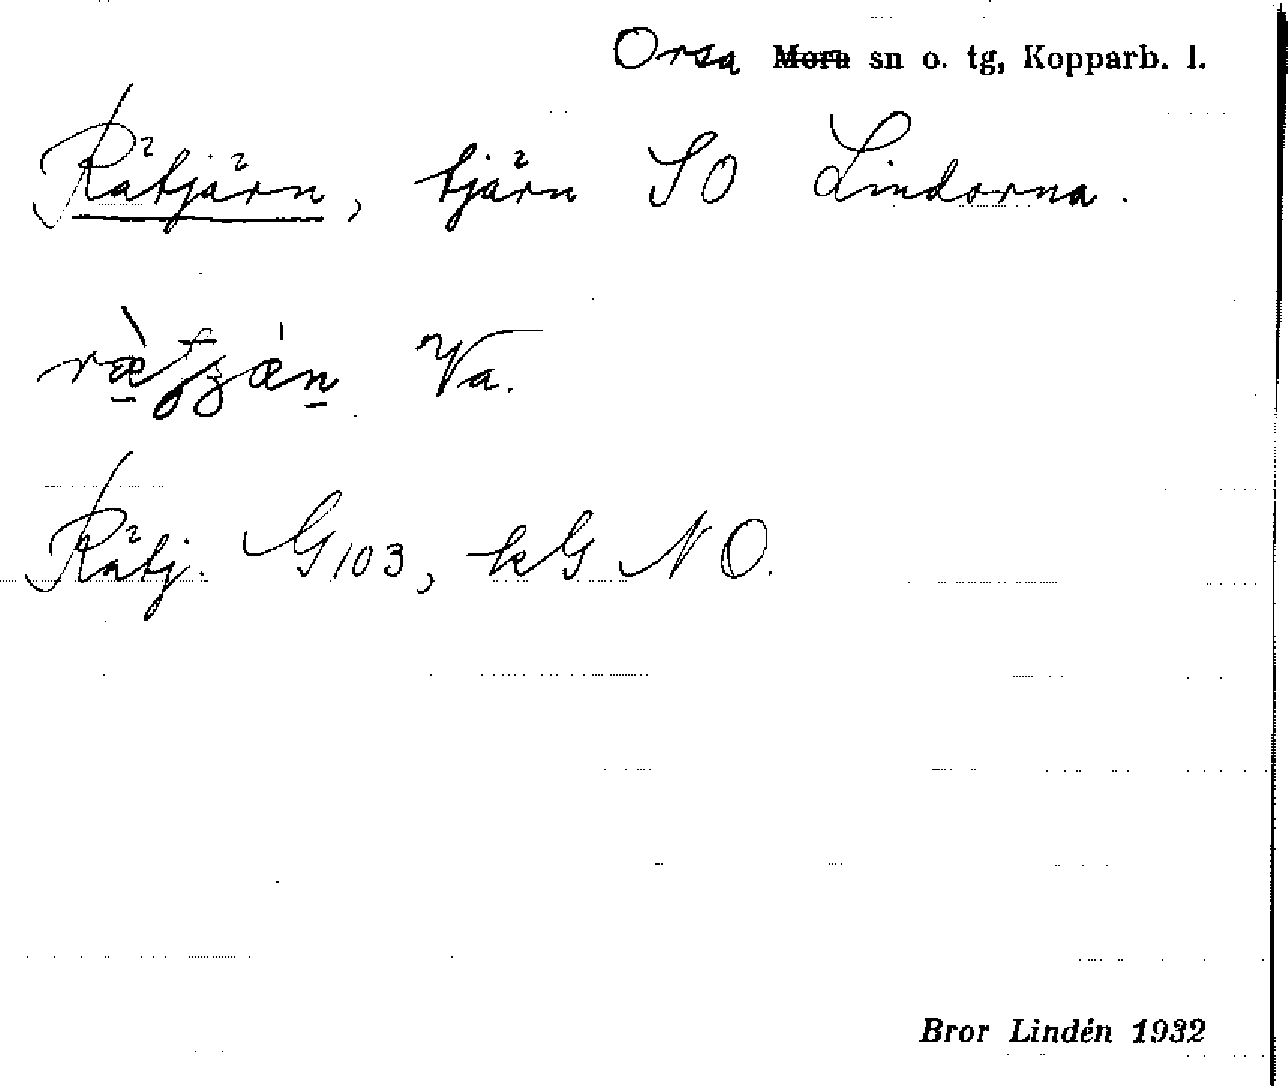 Orsa Mora sn o. tg, Kopparb. l.
Rätjärn, tjärn SO Lindorna.
Va.
Rätj. G103, kG NO.
Bror Lindén 1932